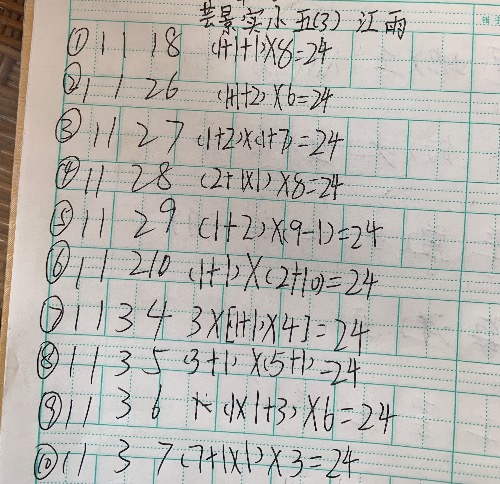 芸景实小五(3) 江雨
① 1 1 1 8 (1+1+1)×8=24
② 1 1 2 6 (1+1+2)×6=24
③ 1 1 2 7 (1+2)×(1+7)=24
④ 1 1 2 8 (2+1×1)×8=24
⑤ 1 1 2 9 (1+2)×(9-1)=24
⑥ 1 1 2 10 (1+1)×(2+10)=24
⑦ 1 1 3 4 3×[(1+1)×4]=24
⑧ 1 1 3 5 (3+1)×(5+1)=24
⑨ 1 1 3 6 (1×1+3)×6=24
⑩ 1 1 3 7 (7+1×1)×3=24